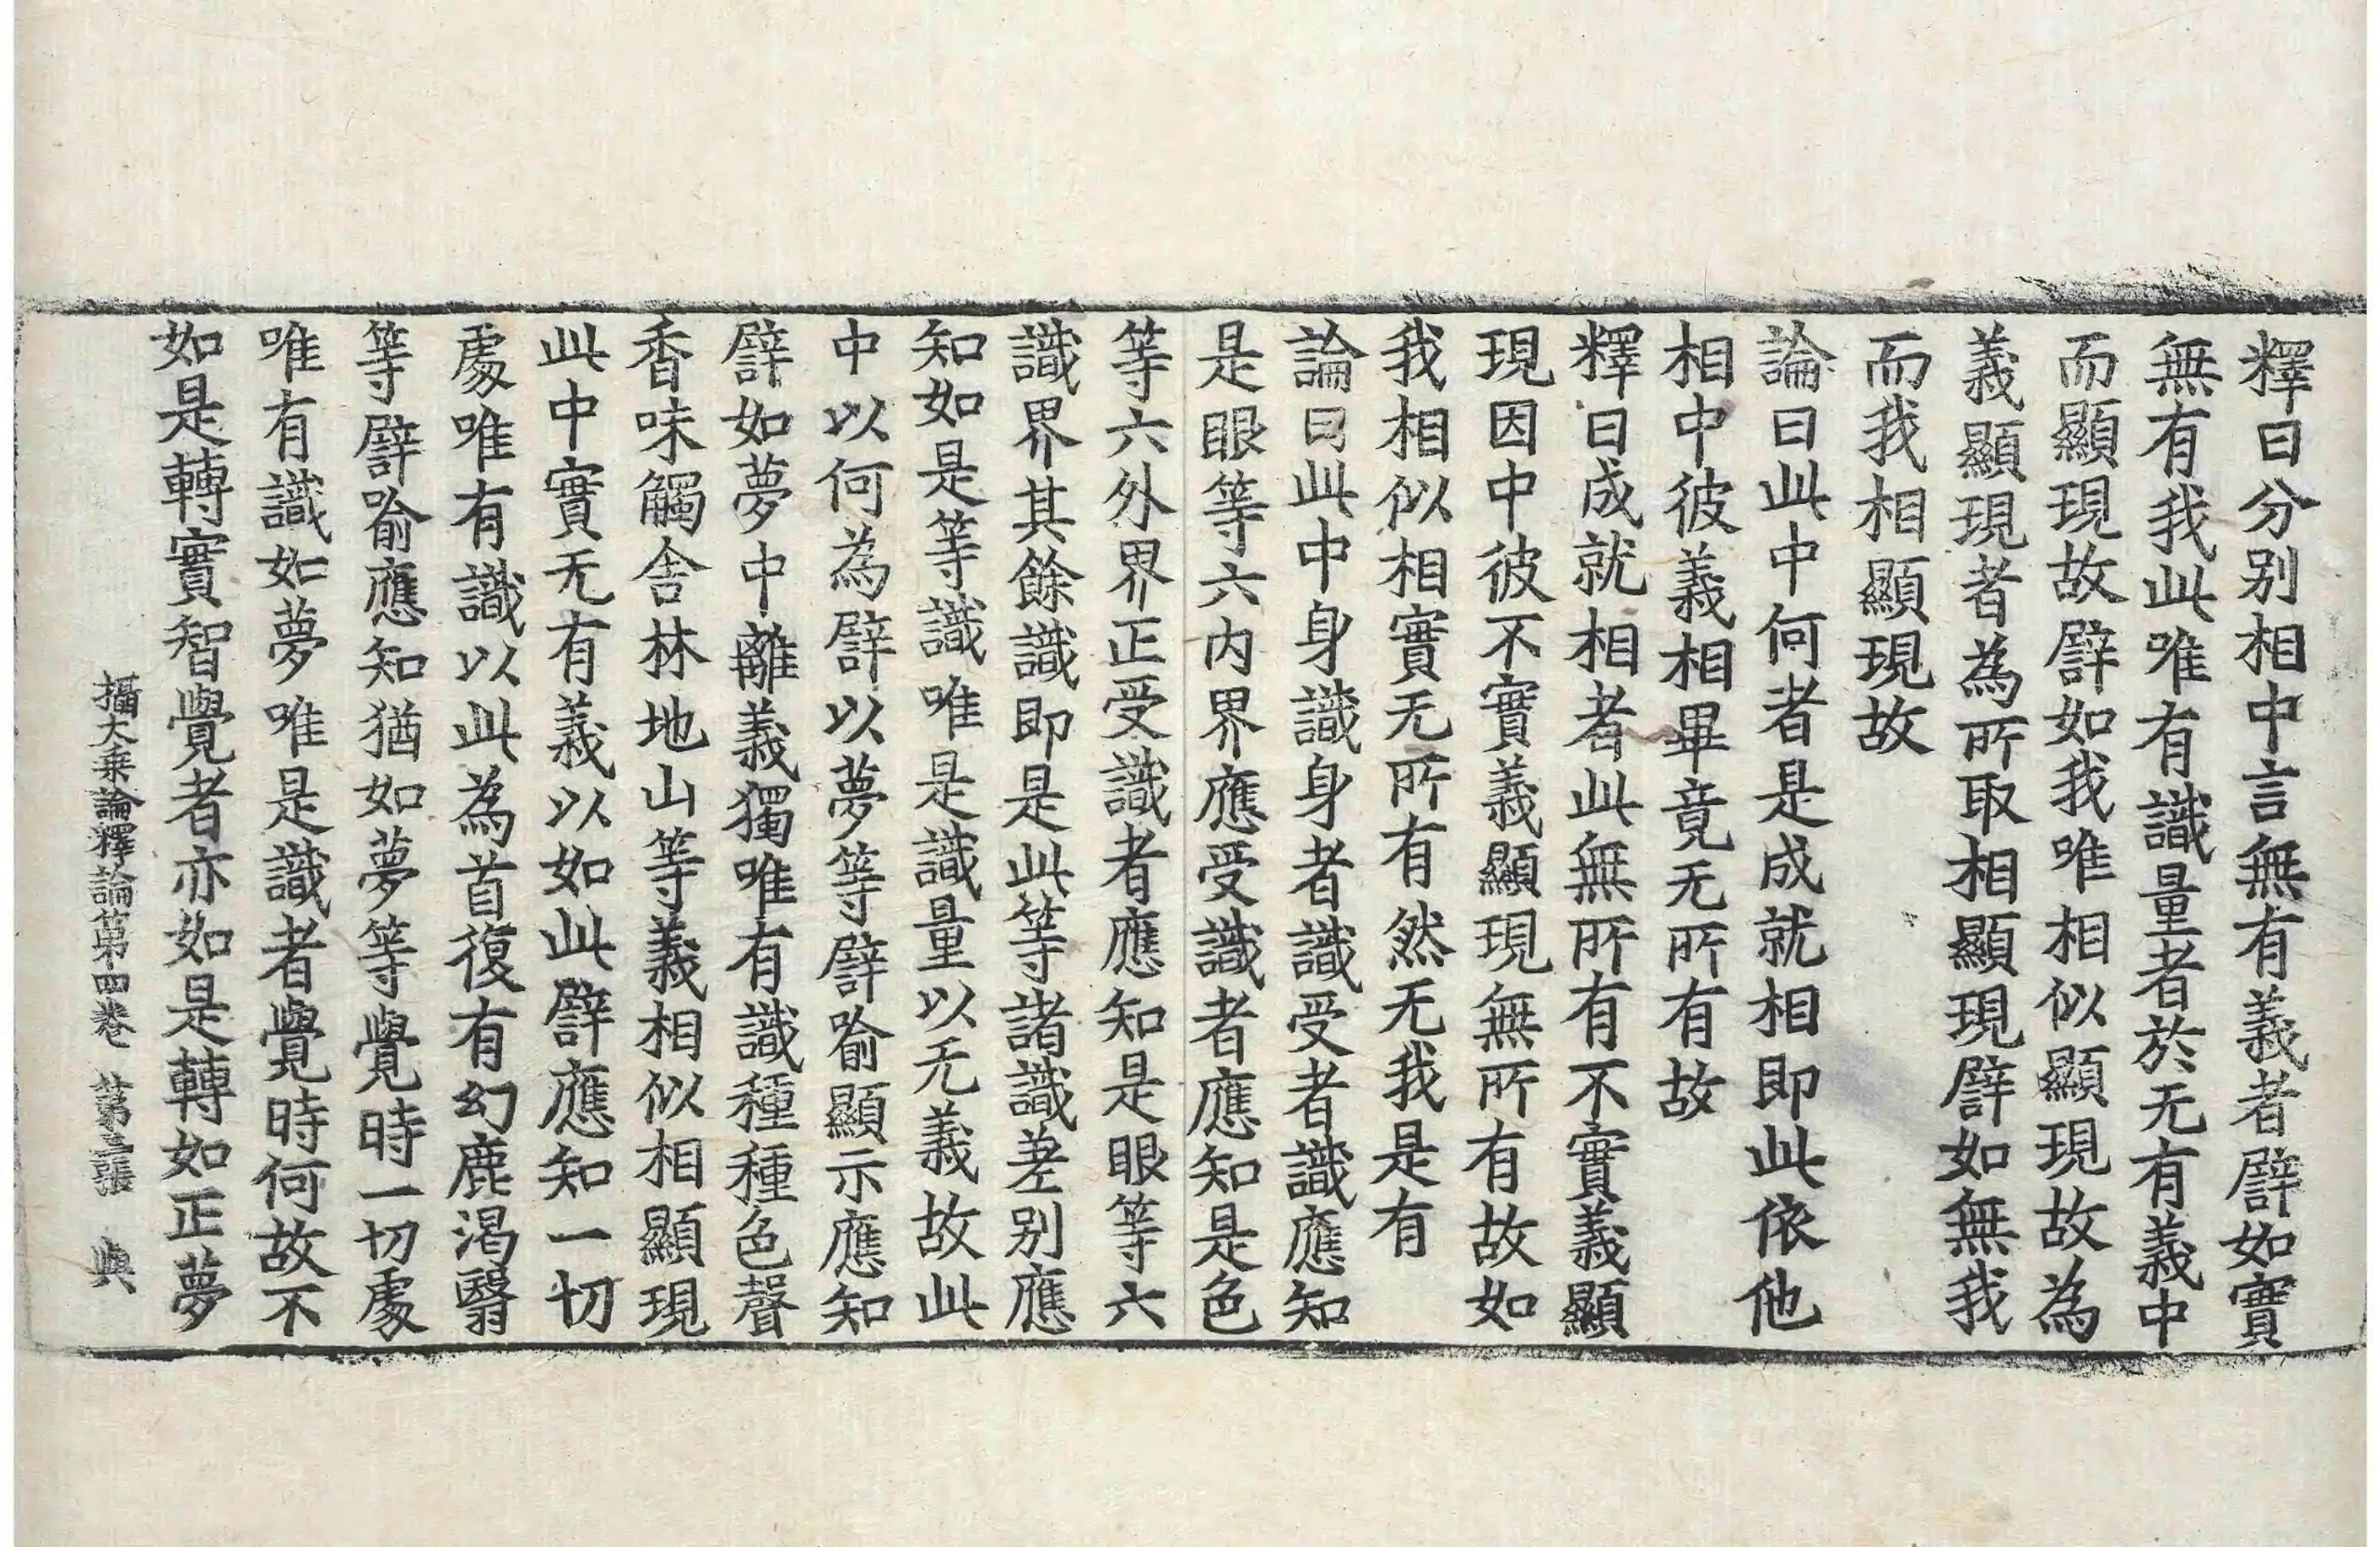 釋曰分別相中言無有義者譬如實
無有我此唯有識量者於无有義中
而顯現故譬如我唯相似顯現故為
義顯現者為所取相顯現譬如無我
而我相顯現故
論曰此中何者是成就相即此依他
相中彼義相畢竟无所有故
釋曰成就相者此無所有不實義顯
現因中彼不實義顯現無所有故如
我相似相實无所有然无我是有
論曰此中身識身者識受者識應知
是眼等六內界應受識者應知是色
等六外界正受識者應知是眼等六
識界其餘識即是此等諸識差別應
知如是等識唯是識量以无義故此
中以何為譬以夢等譬喻顯示應知
譬如夢中離義獨唯有識種種色聲
香味觸舍林地山等義相似相顯現
此中實无有義以如此譬應知一切
處唯有識以此為首復有幻鹿渴翳
等譬喻應知猶如夢等覺時一切處
唯有識如夢唯是識者覺時何故不
如是轉實智覺者亦如是轉如正夢
攝大乘論釋論第四卷 第三張 與